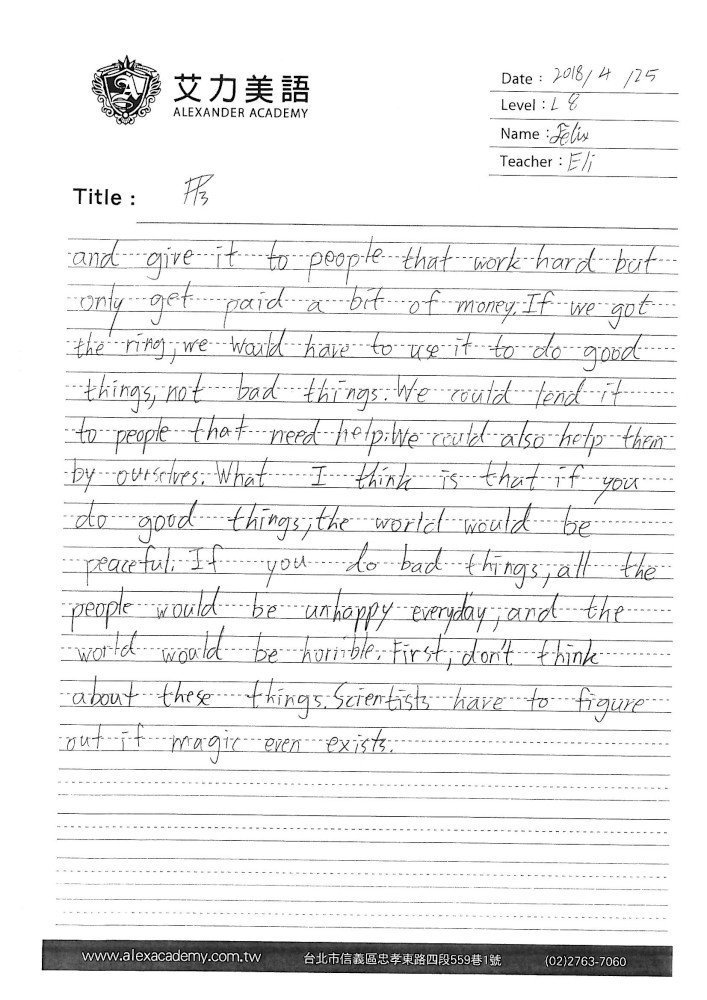 艾力美語
ALEXANDER ACADEMY
Date : 2018/4/25
Level : L8
Name : Felix
Teacher : Eli
Title :
and give it to people that work hard but
only get paid a bit of money. If we got
the ring, we would have to use it to do good
things, not bad things. We could lend it
to people that need help. We could also help them
by ourselves. What I think is that if you
do good things, the world would be
peaceful. If you do bad things, all the
people would be unhappy everyday, and the
world would be horrible. First, don't think
about these things. Scientists have to figure
out if magic even exists.
www.alexacademy.com.tw 台北市信義區忠孝東路四段559巷1號 (02)2763-7060